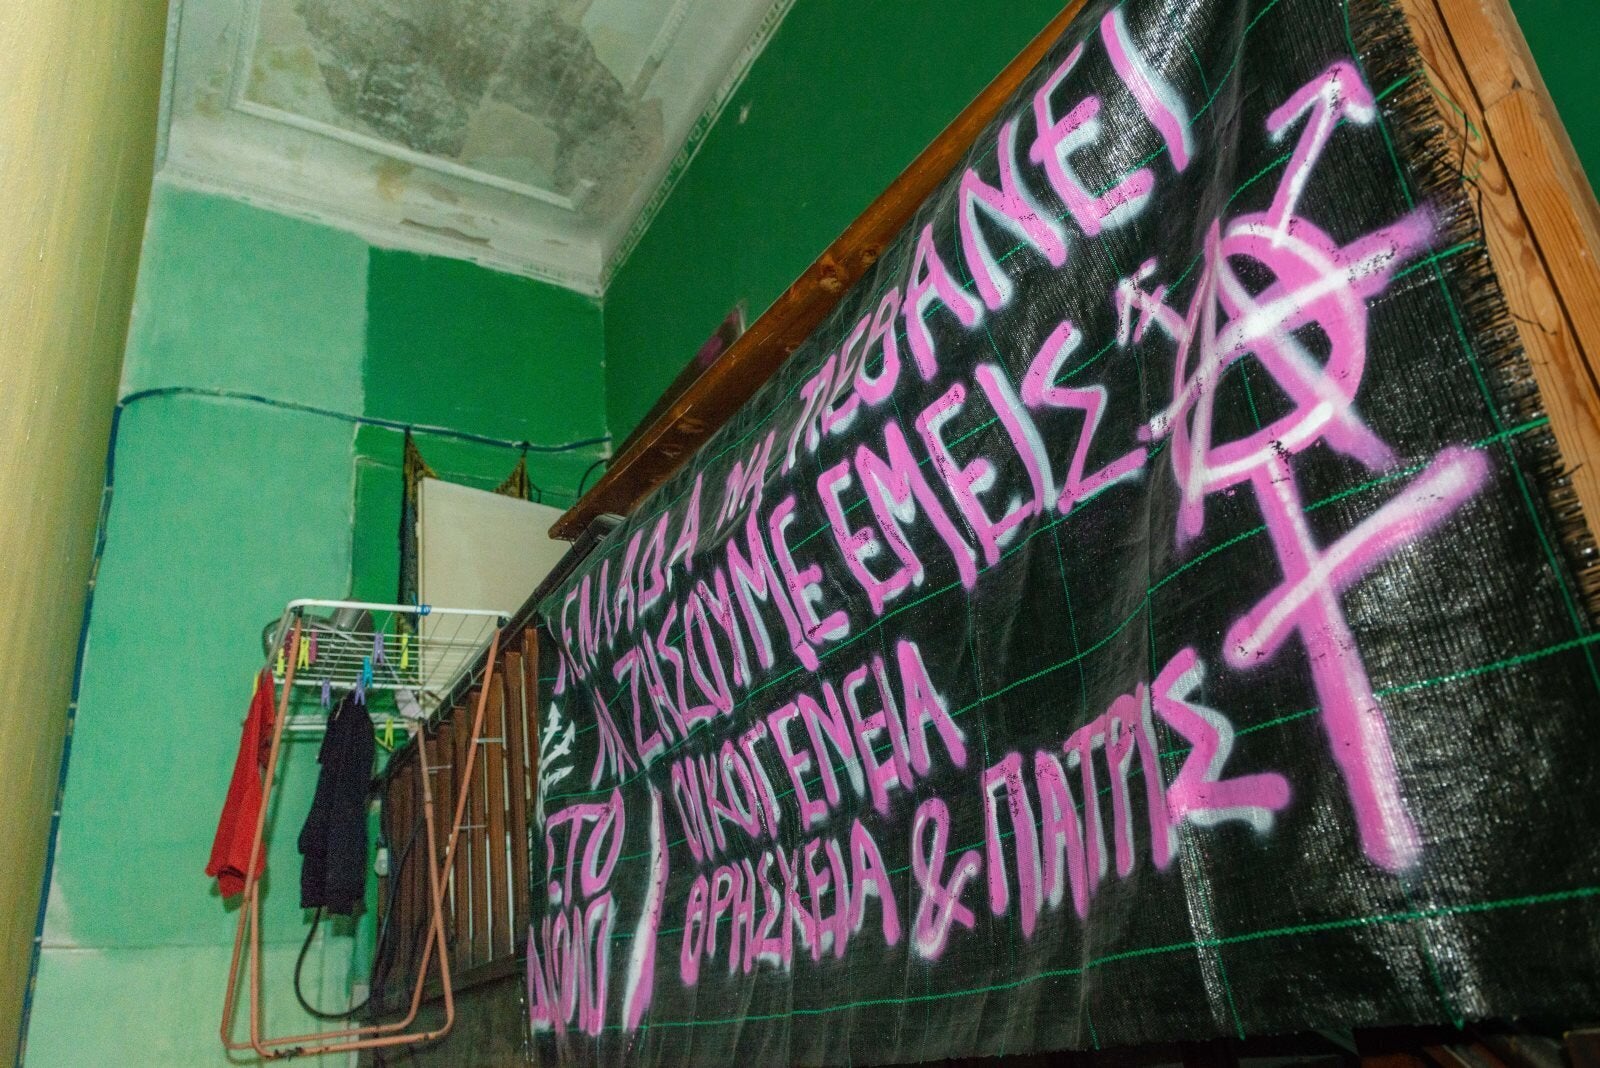 Η ΕΛΛΑΔΑ ΝΑ ΠΕΘΑΝΕΙ
ΝΑ ΖΗΣΟΥΜΕ ΕΜΕΙΣ
ΣΤΟ ΔΙΟΛΟ
ΟΙΚΟΓΕΝΕΙΑ
ΘΡΗΣΚΕΙΑ & ΠΑΤΡΙΣ